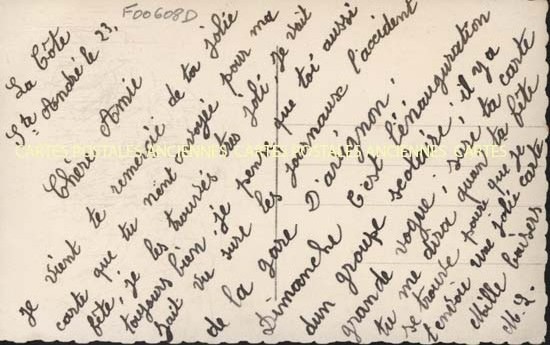 F00608D
La Côte
St André le 23,
Chère Amie
Je vient te remercié de ta jolie
carte que tu m'ent envoyée pour ma
fête, je les trouvés très joli. Je vait
toujours bien, je pense que toi aussi
sait vu sure les journause l'accident
de la gare D'avignon.
Dimanche C'est l'énauguration
dun groupe scolaire, il y a
grande vogue, sure ta carte
tu me dira quant ta fête
se trouve pour que je
t'envoie une jolie carte
Mille baisers
M. L.
CARTES POSTALES ANCIENNES CARTES POSTALES ANCIENNES CARTES